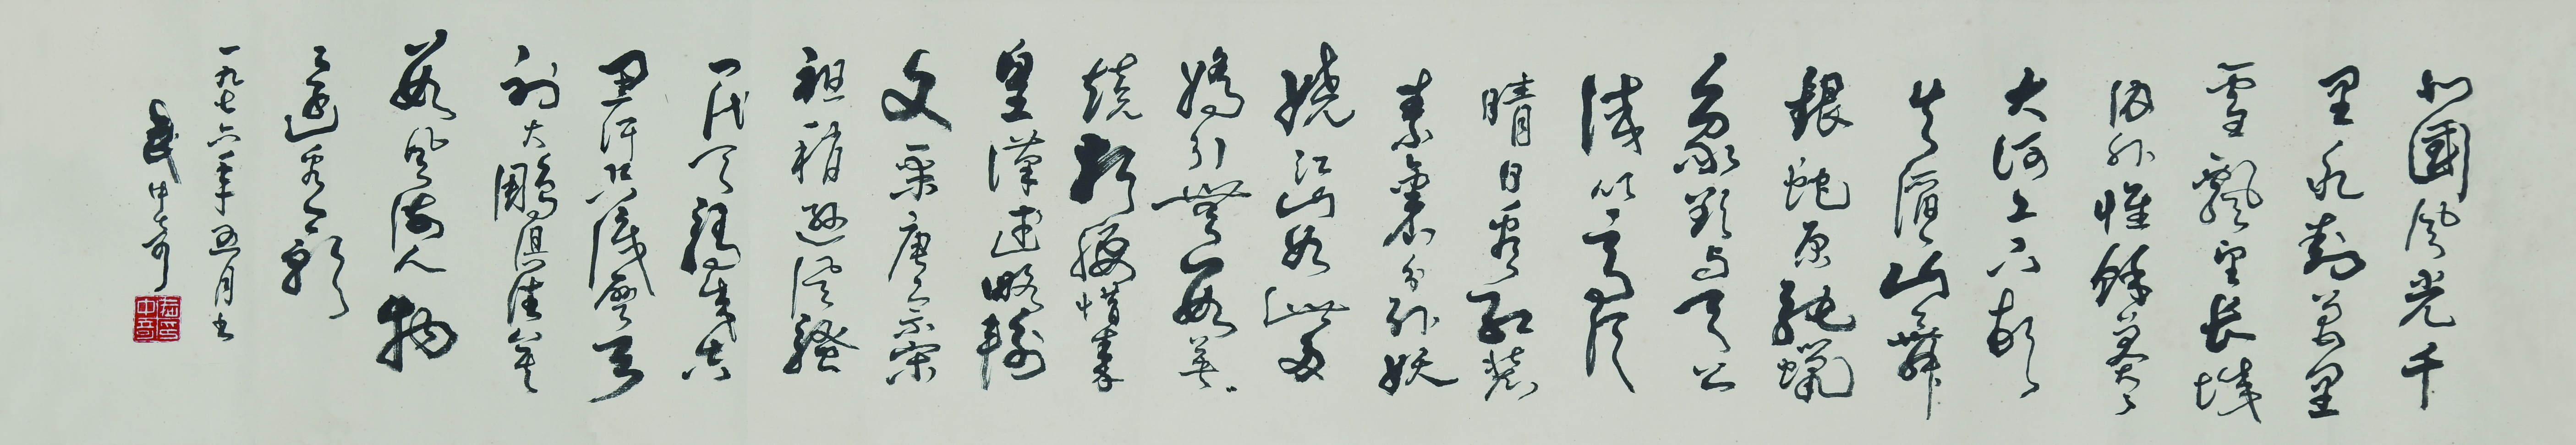 北國風光千
里冰封萬里
雪飄望長城
内外惟餘莽〻
大河上下頓
失滔〻山舞
銀蛇原馳蠟
象欲與天公
試比高須
晴日看紅裝
素裹分外妖
嬈江山如此多
嬌引無數英
競折腰惜秦
皇漢武略輸
文采唐宗宋
祖稍遜風騷
一代天驕成吉
思汗只識彎弓
射大鵰俱往矣
數風流人物
還看今朝
一九七六年五月書
武中奇
武印中奇